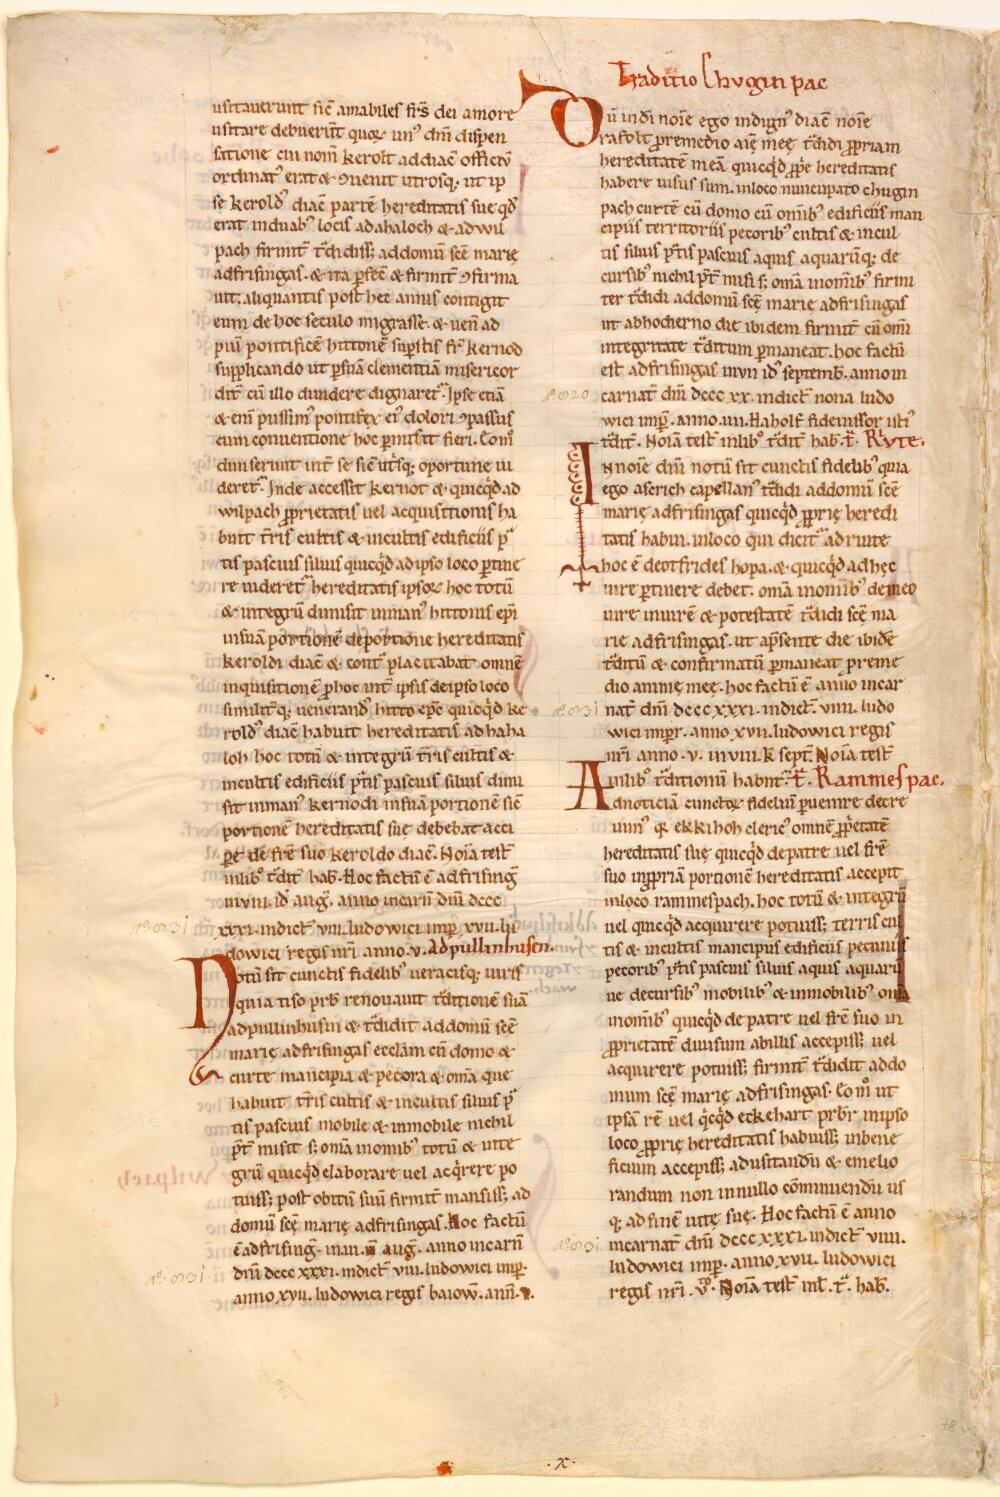 usitauerunt sicē amabiles fr̄s dei amore
usitare debuerūt quoꝝ un᷒ dn̄i dispen
satione cui nom̄ kerolt addiac̄ officiū
ordinat᷒ erat & ꝯuenit utrosq; ut ip
se kerold᷒ diac̄ partē hereditatis sue qd̄
erat induab᷒ locis adahaloch & adwil
pach firmit̄ t̄didiss; addomū sc̄e marię
adfrisingas. & ita ꝑfec̄ & firmit̄ ꝯfirma
uit; aliquantis post hec annis contigit
eum de hoc seculo migrasse. & uen̄ ad
piū pontificē hittonē suꝑstis fr̄ kernod
supplicando ut ꝑsuā clementiā misericor
dit̄ cū illo diuidere dignaret᷑. Ipse etiā
& eni᷒ piissim᷒ pontifex ei᷒ dolori ꝯpassus
eum conuentione hoc ꝑmisit fieri. Com᷒
diuiserunt int̄ se sic̄ ut̄sq; oportune ui
deret᷑. Inde accessit kernot & quicq̄d ad
wilpach ꝓprietatis uel acquisitionis ha
buit t̄ris cultis & incultis edificiis p᷑
tis pascuis siluis quicq̄d adipso loco ꝑtine
re uideret᷑ hereditatis ipsoꝝ hoc totū
& integrū dimisit inman᷒ hittonis ep̄i
insuā portionē deportione hereditatis
keroldi diac̄ & cont᷑ placitabat omnē
inquisitionē ꝓhoc int̄ ipsis deipso loco
similit̄q; uenerand᷒ hitto ep̄c quicq̄d ke
rold᷒ diac̄ habuit hereditatis ad haha
loh hoc totū & integrū t̄ris cultis &
incultis edificiis p̄tis pascuis siluis dimi
sit inman᷒ kernodi insuā portionē sic̄
portionē hereditatis suę debebat acci
ꝑe de fr̄e suo keroldo diac̄. Noīa test̄
inlib᷒ t̄dit̄ hab̄. Hoc factū ē adfrising̅
inuiii id᷒ aug̅. anno incarn̄ dn̄i dccc
aº 831
xxxi. indict̄ uiii. ludouuici imp̄ xvii. lu
dowici regis nr̄i anno. v. Adpullinhusen.
Notū sit cunctis fidelib᷒ ueracisq; uiris
quia tiso prb̄ renouauit t̄ditionē suā
adpullinhusin & t̄didit addomū sc̄e
marię adfrisingas ecclam̄ cū domo &
curte mancipia & pecora & om̄a que
habuit t̄ris cultis & incultis siluis p᷑
tis pascuis mobile & inmobile nichil
p̄t̄ misit s; om̄a inomīb᷒ totū & inte
grū quicq̄d elaborare uel acq̄rere po
tuiss; post obitū suū firmit̄ mansiss; ad
domū sc̄e marię adfrisingas. Hoc factū
ē adfrising̅. inui. n̄ aug̅. anno incarn̄
aº 831
dn̄i dccc xxxi. indict̄ viii. ludowici imꝑ.
anno xvii. ludowici regis baiow̄. ann̄. v.
Traditio Chuginpac
Dū indī noīe ego indign᷒ diac̄ noīe
orafolt ꝓremedio aīę meę t̄didi ꝓpriam
hereditatē meā quicq̄d ꝓp̄e hereditatis
habere uisus sum. inloco nuncupato chugin
pach curtē cū domo cū om̄ib᷒ edificiis man
cipiis territoriis pecorib᷒ cultis & incul
tis siluis p̄tis pascuis aquis aquarūq; de
cursib᷒ nichil p̄t̄ misi s; om̄a inomīb᷒ firmi
ter t̄didi addomū sc̄ę marie adfrisingas
ut abhodierno die ibidem firmit̄ cū om̄i
integritate t̄ditum ꝑmaneat. hoc factū
est adfrisingas inuii id᷒ septemb̄. anno in
aº 820
carnat̄ dn̄i dccc xx. indict̄ nona ludo
wici imp̄. anno. uii. Haholf fideiussor isti᷒
t̄dit̄. Noīa test̄ inlib᷒ t̄dit̄ hab̄. T̄. Rute.
In noīe dn̄i notū sit cunctis fidelib᷒ quia
ego ascrich capellan᷒ t̄didi addomū sc̄e
marię adfrisingas quicq̄d ꝓprię heredi
tatis habui. inloco qui dicit᷑ ad riute
hoc ē deotfrides hopa. & quicq̄d ad hęc
iure ꝑtinere debet. om̄a inomīb᷒ demeo
iure iniurē & potestatē t̄didi sc̄ę ma
rie adfrisingas. ut ap̄sente die ibidē
t̄ditū & confirmatū ꝑmaneat ꝓreme
dio animę meę. hoc factū ē anno incar
aº 831
nat̄ dn̄i dccc xxxi. indict̄. viii. ludo
wici imꝑr. anno. xvii. ludowici regis
nr̄i anno. v. inuiii. k̄ sept̄. Noīa test̄
inlib᷒ t̄ditionū habn̄t. T̄. Rammespac.
Ad noticiā cunctoꝝ fideliū ꝑuenire decre
uim᷒ q; ekkihoh cleric᷒ omnē ꝓp̄etatē
hereditatis suę quicq̄d de patre uel fr̄e
suo inꝓpriā portionē hereditatis accepit
inloco rammespach. hoc totū & integrū
uel quicq̄d acquirere potuiss; terris cul
tis & incultis mancipiis edificiis pecuniis
pecorib᷒ p̄tis pascuis siluis aquis aquarū
ue decursib᷒ mobilib᷒ & inmobilib᷒ om̄a
inomīb᷒ quicq̄d de patre uel fr̄e suo in
ꝓprietatē diuisum abillis accepiss; uel
acquirere potuiss; firmit̄ t̄didit addo
mum sc̄e marię adfrisingas. Com᷒ ut
ipsā rē uel q̄cq̄d eckehart prb̄r inipso
loco ꝓprię hereditatis habuiss; inbene
ficium accepiss; adusitandū & emelio
randum non innullo cōminuendū us
q; adfinē uitę suę. Hoc factū ē anno
aº 831
incarnat̄ dn̄i dccc xxxi. indict̄ viii.
ludowici imꝑ. anno. xvii. ludowici
regis nr̄i. vº. Noīa test̄ inl̄. t᷑. hab̄.
78
. x .